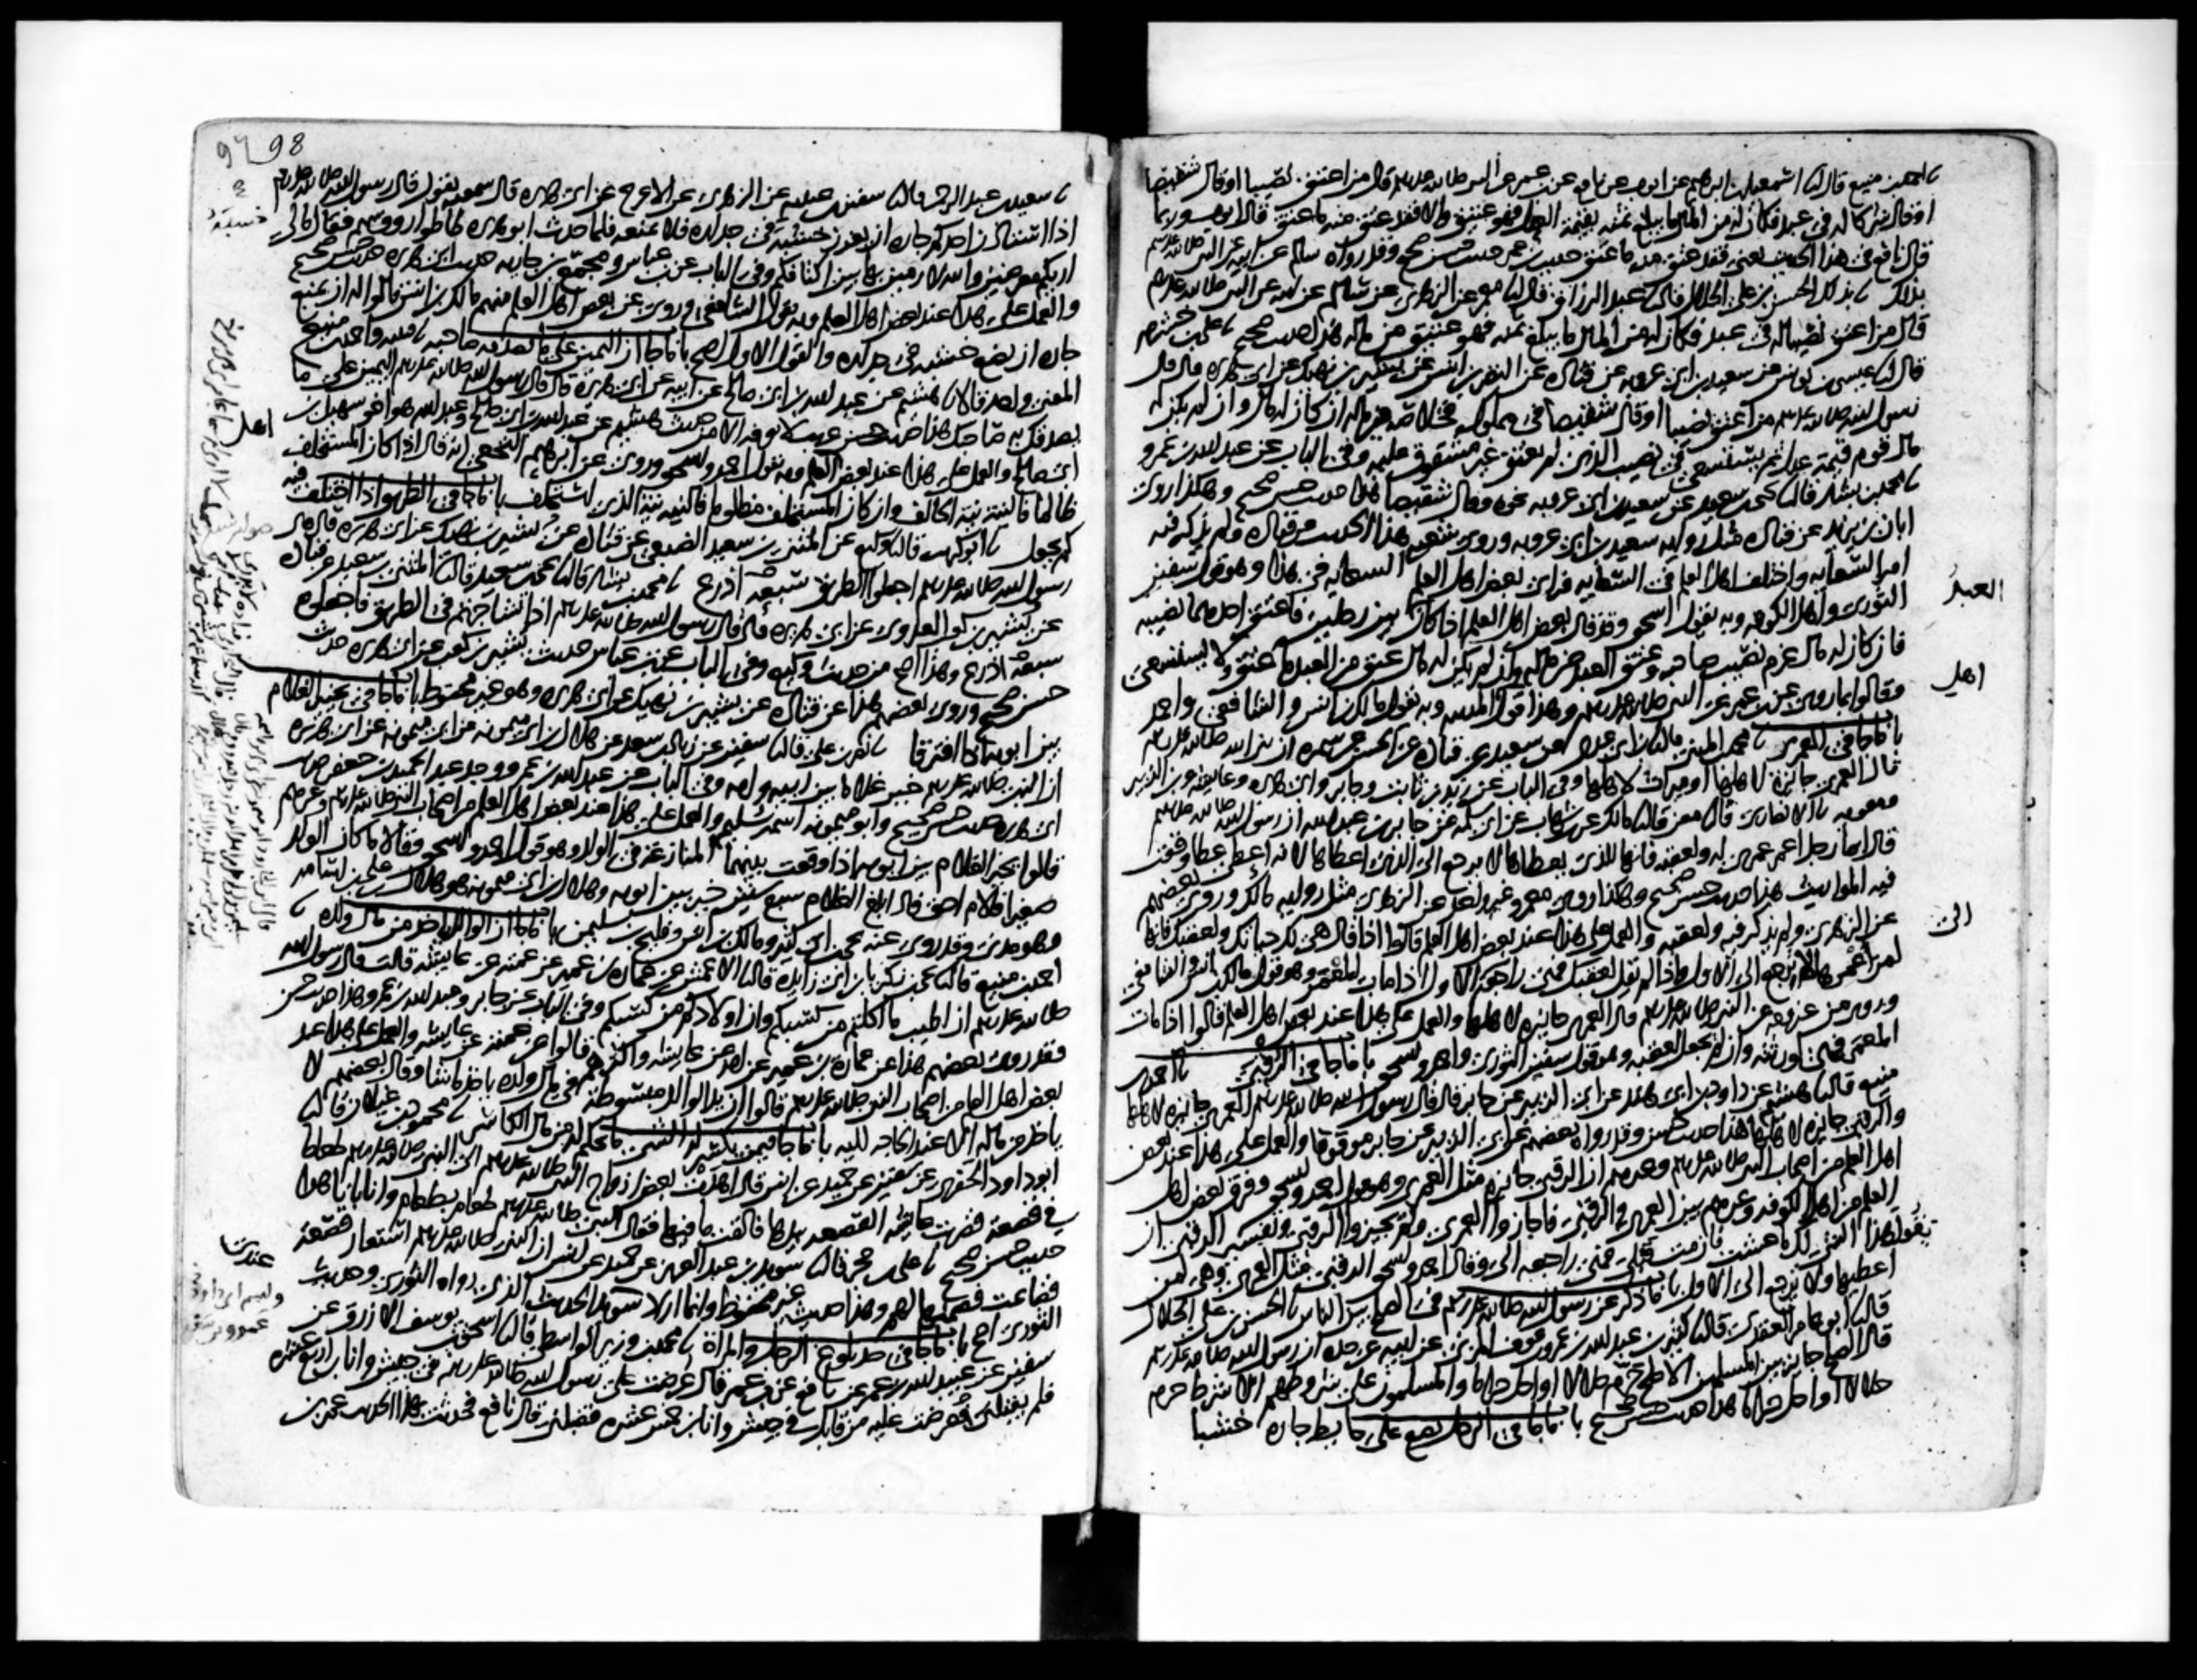 احمد بن منيع قال نا اسمعيل بن ابرهيم عن ايوب عن نافع عن بن عمر عن النبي صلى الله عليه وسلم قال من اعتق نصيبا او قال شقيصا
او قال شركا له في عبد فكان له من المال ما يبلغ ثمنه بقيمة العدل فهو عتيق والا فقد عتق منه ما عتق قال ايوب وربما
قال نافع في هذا الحديث يعني فقد عتق منه ما عتق حديث بن عمر حديث حسن صحيح وقد رواه سالم عن ابيه عن النبي صلى الله عليه وسلم
بذلك الحسن بن علي الخلال قال نا عبد الرزاق قال نا معمر عن الزهري عن سالم عن ابيه عن النبي صلى الله عليه وسلم
قال من اعتق نصيبا له في عبد فكان له من المال ما يبلغ ثمنه فهو عتيق من ماله هذا حديث صحيح نا علي بن خشرم
قال نا عيسى بن يونس عن سعيد بن ابي عروبه عن قتاده عن النضر بن انس عن بشير بن نهيك عن ابي هريره قال قال
رسول الله صلى الله عليه وسلم من اعتق نصيبا او قال شقيصا في مملوك فخلاصه في ماله ان كان له مال وان لم يكن له
مال قوم قيمة عدل ثم يستسعى في نصيب الذي لم يعتق غير مشقوق عليه وفي الباب عن عبد الله بن عمرو
نا محمد بن بشار قال نا يحيى بن سعيد عن سعيد بن ابي عروبه نحوه وقال شقيصا هذا حديث حسن صحيح وهكذا روى
ابان بن يزيد عن قتاده مثل روايه سعيد بن ابي عروبه وروى شعبه هذا الحديث عن قتاده ولم يذكر فيه
امر السعايه واختلف اهل العلم في السعايه فراى بعض اهل العلم السعايه في هذا وهو قول سفين
الثوري واهل الكوفه وبه يقول اسحق وقد قال بعض اهل العلم اذا كان بين رجلين فاعتق احدهما نصيبه
العبد
فان كان له مال غرم نصيب صاحبه وعتق العبد من ماله وان لم يكن له مال عتق من العبد ما عتق ولا يستسعى
وقالوا بما روي عن بن عمر عن النبي صلى الله عليه وسلم وهذا قول المدينه وبه يقول مالك بن انس والشافعي واحمد
اهل
باب ما جا في العمرى نا محمد بن المثنى قال نا بن ابي عدي عن سعيد عن قتاده عن الحسن عن سمره ان نبي الله صلى الله عليه وسلم
قال العمرى جائزة لاهلها او ميراث لاهلها وفي الباب عن زيد بن ثابت وجابر وابي هريره وعايشه وبن الزبير
ومعويه نا الانصاري قال نا معن قال نا مالك عن بن شهاب عن ابي سلمه عن جابر بن عبد الله ان رسول الله صلى الله عليه وسلم
قال ايما رجل اعمر عمرى له ولعقبه فانها للذي يعطاها لا ترجع الى الذي اعطاها لانه اعطى عطا وقعت
فيه المواريث هذا حديث حسن صحيح وهكذا روى معمر وغير واحد عن الزهري مثل روايه مالك وروى بعضهم
عن الزهري ولم يذكر فيه ولعقبه والعمل على هذا عند بعض اهل العلم قالوا اذا قال هي لك حياتك ولعقبك فانها
لمن اعمرها لا ترجع الى الاول واذا لم يقل لعقبك فهي راجعة الى الاول اذا مات المعمر وهو قول مالك بن انس والشافعي
الى
وروي من غير وجه عن النبي صلى الله عليه وسلم قال العمرى جايزه لاهلها والعمل على هذا عند بعض اهل العلم قالوا اذا مات
المعمر فهي لورثته وان لم تجعل لعقبه وهو قول سفين الثوري واحمد واسحق باب ما جا في الرقبى نا احمد بن
منيع قال نا هشيم عن داود بن ابي هند عن ابي الزبير عن جابر قال قال رسول الله صلى الله عليه وسلم العمرى جايزه لاهلها
والرقبى جايزه لاهلها هذا حديث حسن وقد رواه بعضهم عن ابي الزبير عن جابر موقوفا والعمل على هذا عند بعض
اهل العلم من اصحاب النبي صلى الله عليه وسلم وغيرهم ان الرقبى جايزه مثل العمرى وهو قول احمد واسحق وفرق بعض اهل
العلم من اهل الكوفه وغيرهم بين العمرى والرقبى فاجازوا العمرى ولم يجيزوا الرقبى وتفسير الرقبى ان
يقول هذا الشي لك ما عشت فان مت قبلي فهي راجعه الي وقال احمد واسحق الرقبى مثل العمرى وهي لمن
اعطيها ولا ترجع الى الاول باب ما ذكر عن رسول الله صلى الله عليه وسلم في الصلح بين الناس نا الحسن بن علي الخلال
قال نا ابو عامر العقدي قال نا كثير بن عبد الله بن عمرو بن عوف المزني عن ابيه عن جده ان رسول الله صلى الله عليه وسلم
قال الصلح جايز بين المسلمين الا صلحا حرم حلالا او احل حراما والمسلمون على شروطهم الا شرطا حرم
حلالا او احل حراما هذا حديث حسن صحيح باب ما جا في الرجل يضع على حايط جاره خشبا
98
نا سعيد بن عبد الرحمن قال نا سفين بن عيينه عن الزهري عن الاعرج عن ابي هريره قال سمعته يقول قال رسول الله صلى الله عليه وسلم
اذا استاذن احدكم جاره ان يغرز خشبه في جداره فلا يمنعه فلما حدث ابو هريره طاطوا رووسهم فقال مالي
خشبة
اراكم معرضين والله لارمين بها بين اكتافكم وفي الباب عن بن عباس ومجمع بن جاريه حديث ابي هريره حديث حسن صحيح
والعمل على هذا عند بعض اهل العلم وبه يقول الشافعي وروي عن بعض اهل العلم منهم مالك بن انس قالوا له ان يمنع
جاره ان يضع خشبه في جداره والقول الاول اصح باب ما جا ان اليمين على ما يصدقه صاحبه نا قتيبه واحمد بن منيع
المعنى واحد قالا نا هشيم عن عبد الله بن ابي صالح عن ابيه عن ابي هريره قال قال رسول الله صلى الله عليه وسلم اليمين على ما
يصدقك به صاحبك هذا حديث حسن غريب لا نعرفه الا من حديث هشيم عن عبد الله بن ابي صالح وعبد الله هو اخو سهيل بن
ابي صالح والعمل على هذا عند بعض العلم وبه يقول احمد واسحق وروي عن ابرهيم النخعي انه قال اذا كان المستحلف
اهل
ظالما فالنية نية الحالف وان كان المستحلف مظلوما فالنيه نية الذي استحلف باب ما جا في الطريق اذا اختلف فيه
كم يجعل نا ابو كريب قال نا وكيع عن المثنى بن سعيد الضبعي عن قتاده عن بشير بن نهيك عن ابي هريره قال قال
رسول الله صلى الله عليه وسلم اجعلوا الطريق سبعة اذرع نا محمد بن بشار قال نا يحيى بن سعيد قال نا المثنى بن سعيد عن قتاده
عن بشير بن كعب العدوي عن ابي هريره قال قال رسول الله صلى الله عليه وسلم اذا تشاجرتم في الطريق فاجعلوه
سبعة اذرع وهذا اصح من حديث وكيع وفي الباب عن بن عباس حديث بشير بن كعب عن ابي هريره حديث
حسن صحيح وروى بعضهم هذا عن قتاده عن بشير بن نهيك عن ابي هريره وهو غير محفوظ باب ما جا في تخيير الغلام
بين ابويه اذا افترقا نا نصر بن علي قال نا سفين عن زياد بن سعد عن هلال بن ابي ميمونه عن ابي ميمونه عن ابي هريره
ان النبي صلى الله عليه وسلم خير غلاما بين ابيه وامه وفي الباب عن عبد الله بن عمرو وجد عبد الحميد بن جعفر حديث
ابي هريره حديث حسن صحيح وابو ميمونه اسمه سليم والعمل على هذا عند بعض اهل العلم من اصحاب النبي صلى الله عليه وسلم وغيرهم
قالوا يخير الغلام بين ابويه اذا وقعت بينهما المنازعة في الولد وهو قول احمد واسحق وقالا ما كان الولد
صغيرا فالام احق فاذا بلغ الغلام سبع سنين خير بين ابويه وهلال بن ابي ميمونه هو هلال بن علي بن اسامه
وهو مدني وقد روى عنه يحيى بن ابي كثير ومالك بن انس وفليح بن سليمن باب ما جا ان الوالد ياخذ من مال ولده نا
احمد بن منيع قال نا يحيى بن زكريا بن ابي زايده قال نا الاعمش عن عماره بن عمير عن عمته عن عايشه قالت قال رسول الله
صلى الله عليه وسلم ان اطيب ما اكلتم من كسبكم وان اولادكم من كسبكم وفي الباب عن جابر وعبد الله بن عمرو هذا حديث حسن
وقد روى بعضهم هذا عن عماره بن عمير عن امه عن عايشه واكثرهم قالوا عن عمته عن عايشه والعمل على هذا عند
بعض اهل العلم من اصحاب النبي صلى الله عليه وسلم قالوا ان يد الوالد مبسوطة في مال ولده ياخذ ما شا وقال بعضهم لا
ياخذ من ماله الا عند الحاجه اليه باب ما جا فيمن يكسر له الشي ما يحكم له من مال الكاسر نا محمود بن غيلان قال نا
ابو داود الحفري عن سفين عن حميد عن انس قال اهدت بعض ازواج النبي صلى الله عليه وسلم الى النبي صلى الله عليه وسلم طعاما
في قصعة فضربت عايشه القصعه بيدها فالقت ما فيها فقال النبي صلى الله عليه وسلم طعام بطعام وانا بانا هذا
حديث حسن صحيح نا علي بن حجر قال نا سويد بن عبد العزيز عن حميد عن انس ان النبي صلى الله عليه وسلم استعار قصعة
فضاعت فضمنها لهم وهذا حديث غير محفوظ وانما اراد سويد الحديث الذي رواه الثوري وحديث
عندي
الثوري اصح باب ما جا في حد بلوغ الرجل والمراة نا محمد بن وزير الواسطي قال نا اسحق بن يوسف الازرق عن
سفين عن عبيد الله بن عمر عن نافع عن بن عمر قال عرضت على رسول الله صلى الله عليه وسلم في جيش وانا بن اربع عشره
فلم يقبلني فعرضت عليه من قابل في جيش وانا بن خمس عشره فقبلني قال نافع فحدثت بهذا الحديث عمر بن